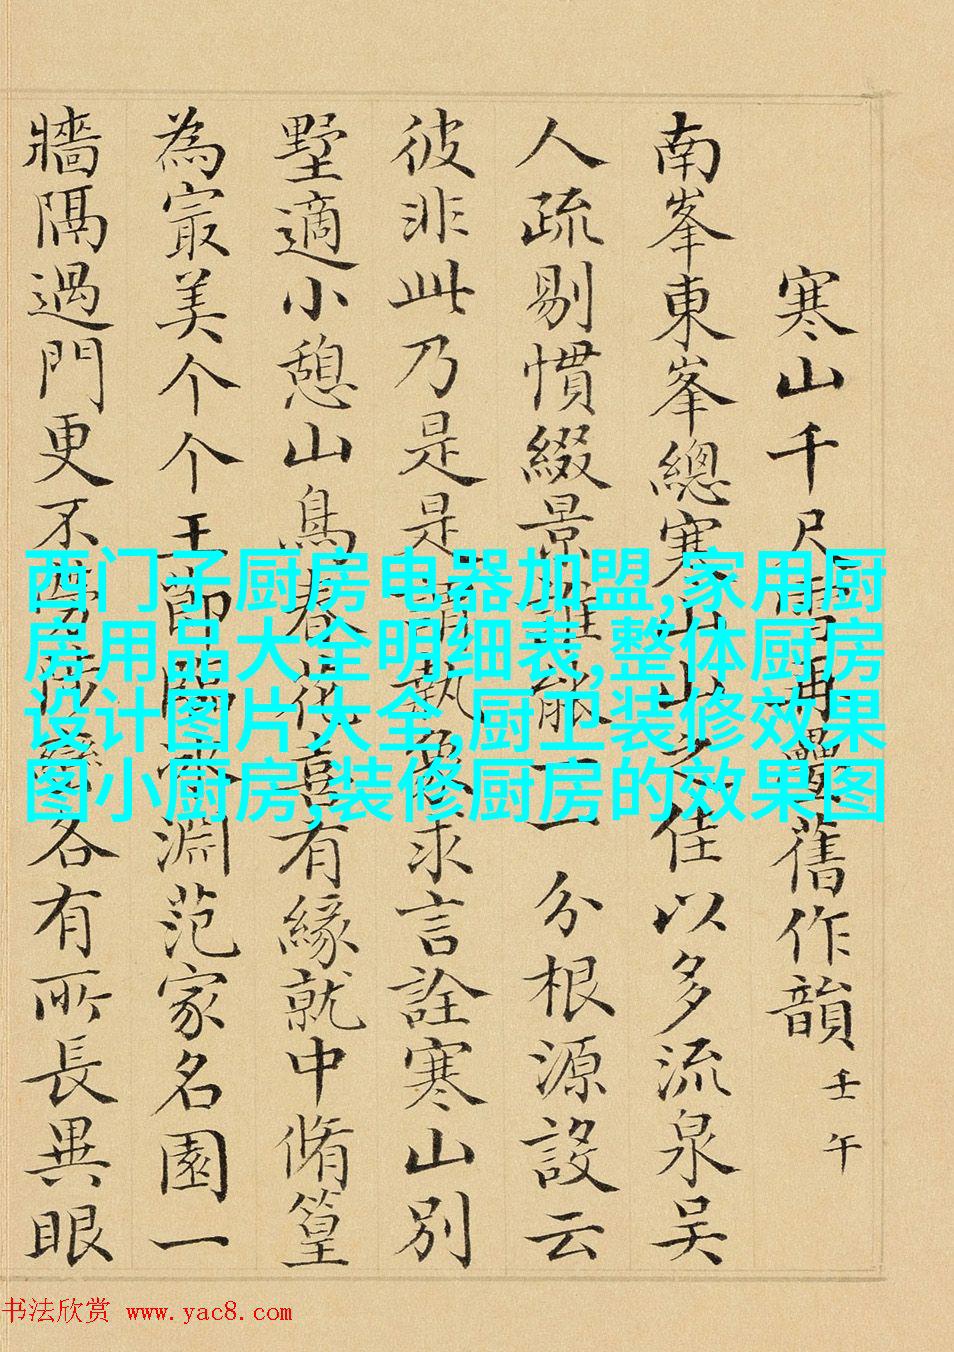 寒山千尺雪再疊舊作韻 壬午
南峯東峯總寒山山之佳以多流泉吴
人疏剔慣綴景誰能一一分根源設云
彼非此乃是是謂執象求言詮寒山別
墅適小憩山鳥春花喜有緣就中脩篁
為冣美个个玉節臨清淵范家名園一
牆隔過門更不勞漪各有所長異眼
西门子厨房电器加盟,家用厨
房用品大全明细表,整体厨房
设计图片大全,厨卫装修效果
图小厨房,装修厨房的效果图
书法欣赏 www.yac8.com